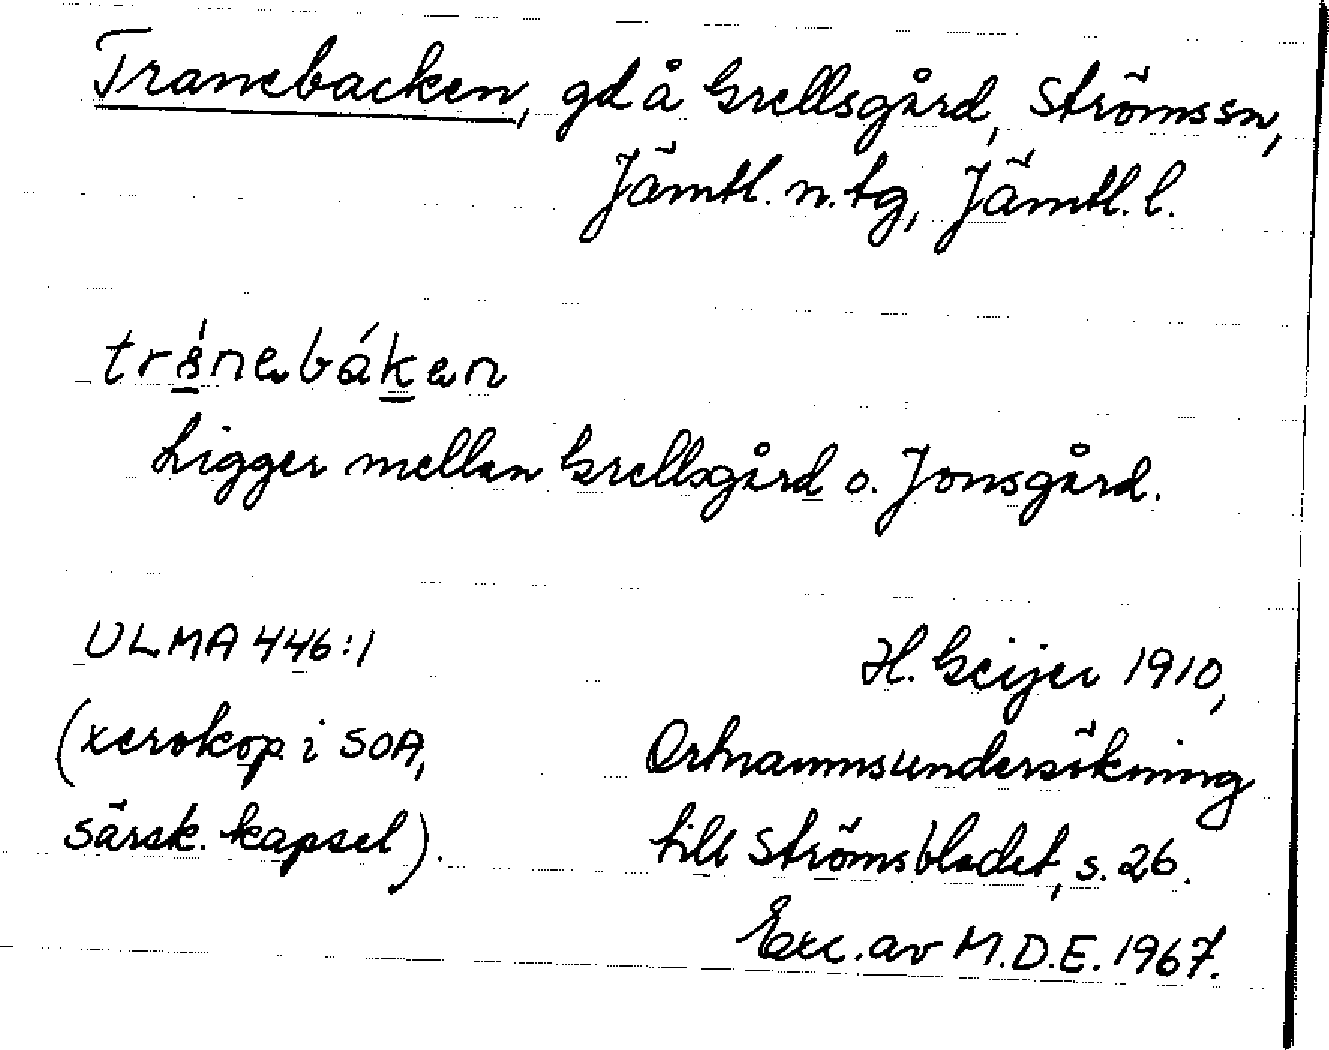 Tranebacken, gd å Grellsgård, Ströms sn,
Jämtl. n. tg, Jämtl. l.
Ligger mellan Grellsgård o. Jonsgård.
ULMA 446:1
(xerokop. i SOA,
särsk. kapsel).
H. Geijer 1910,
Ortnamnsundersökning
till Strömsbladet, s. 26.
Exc. av M.D.E. 1967.